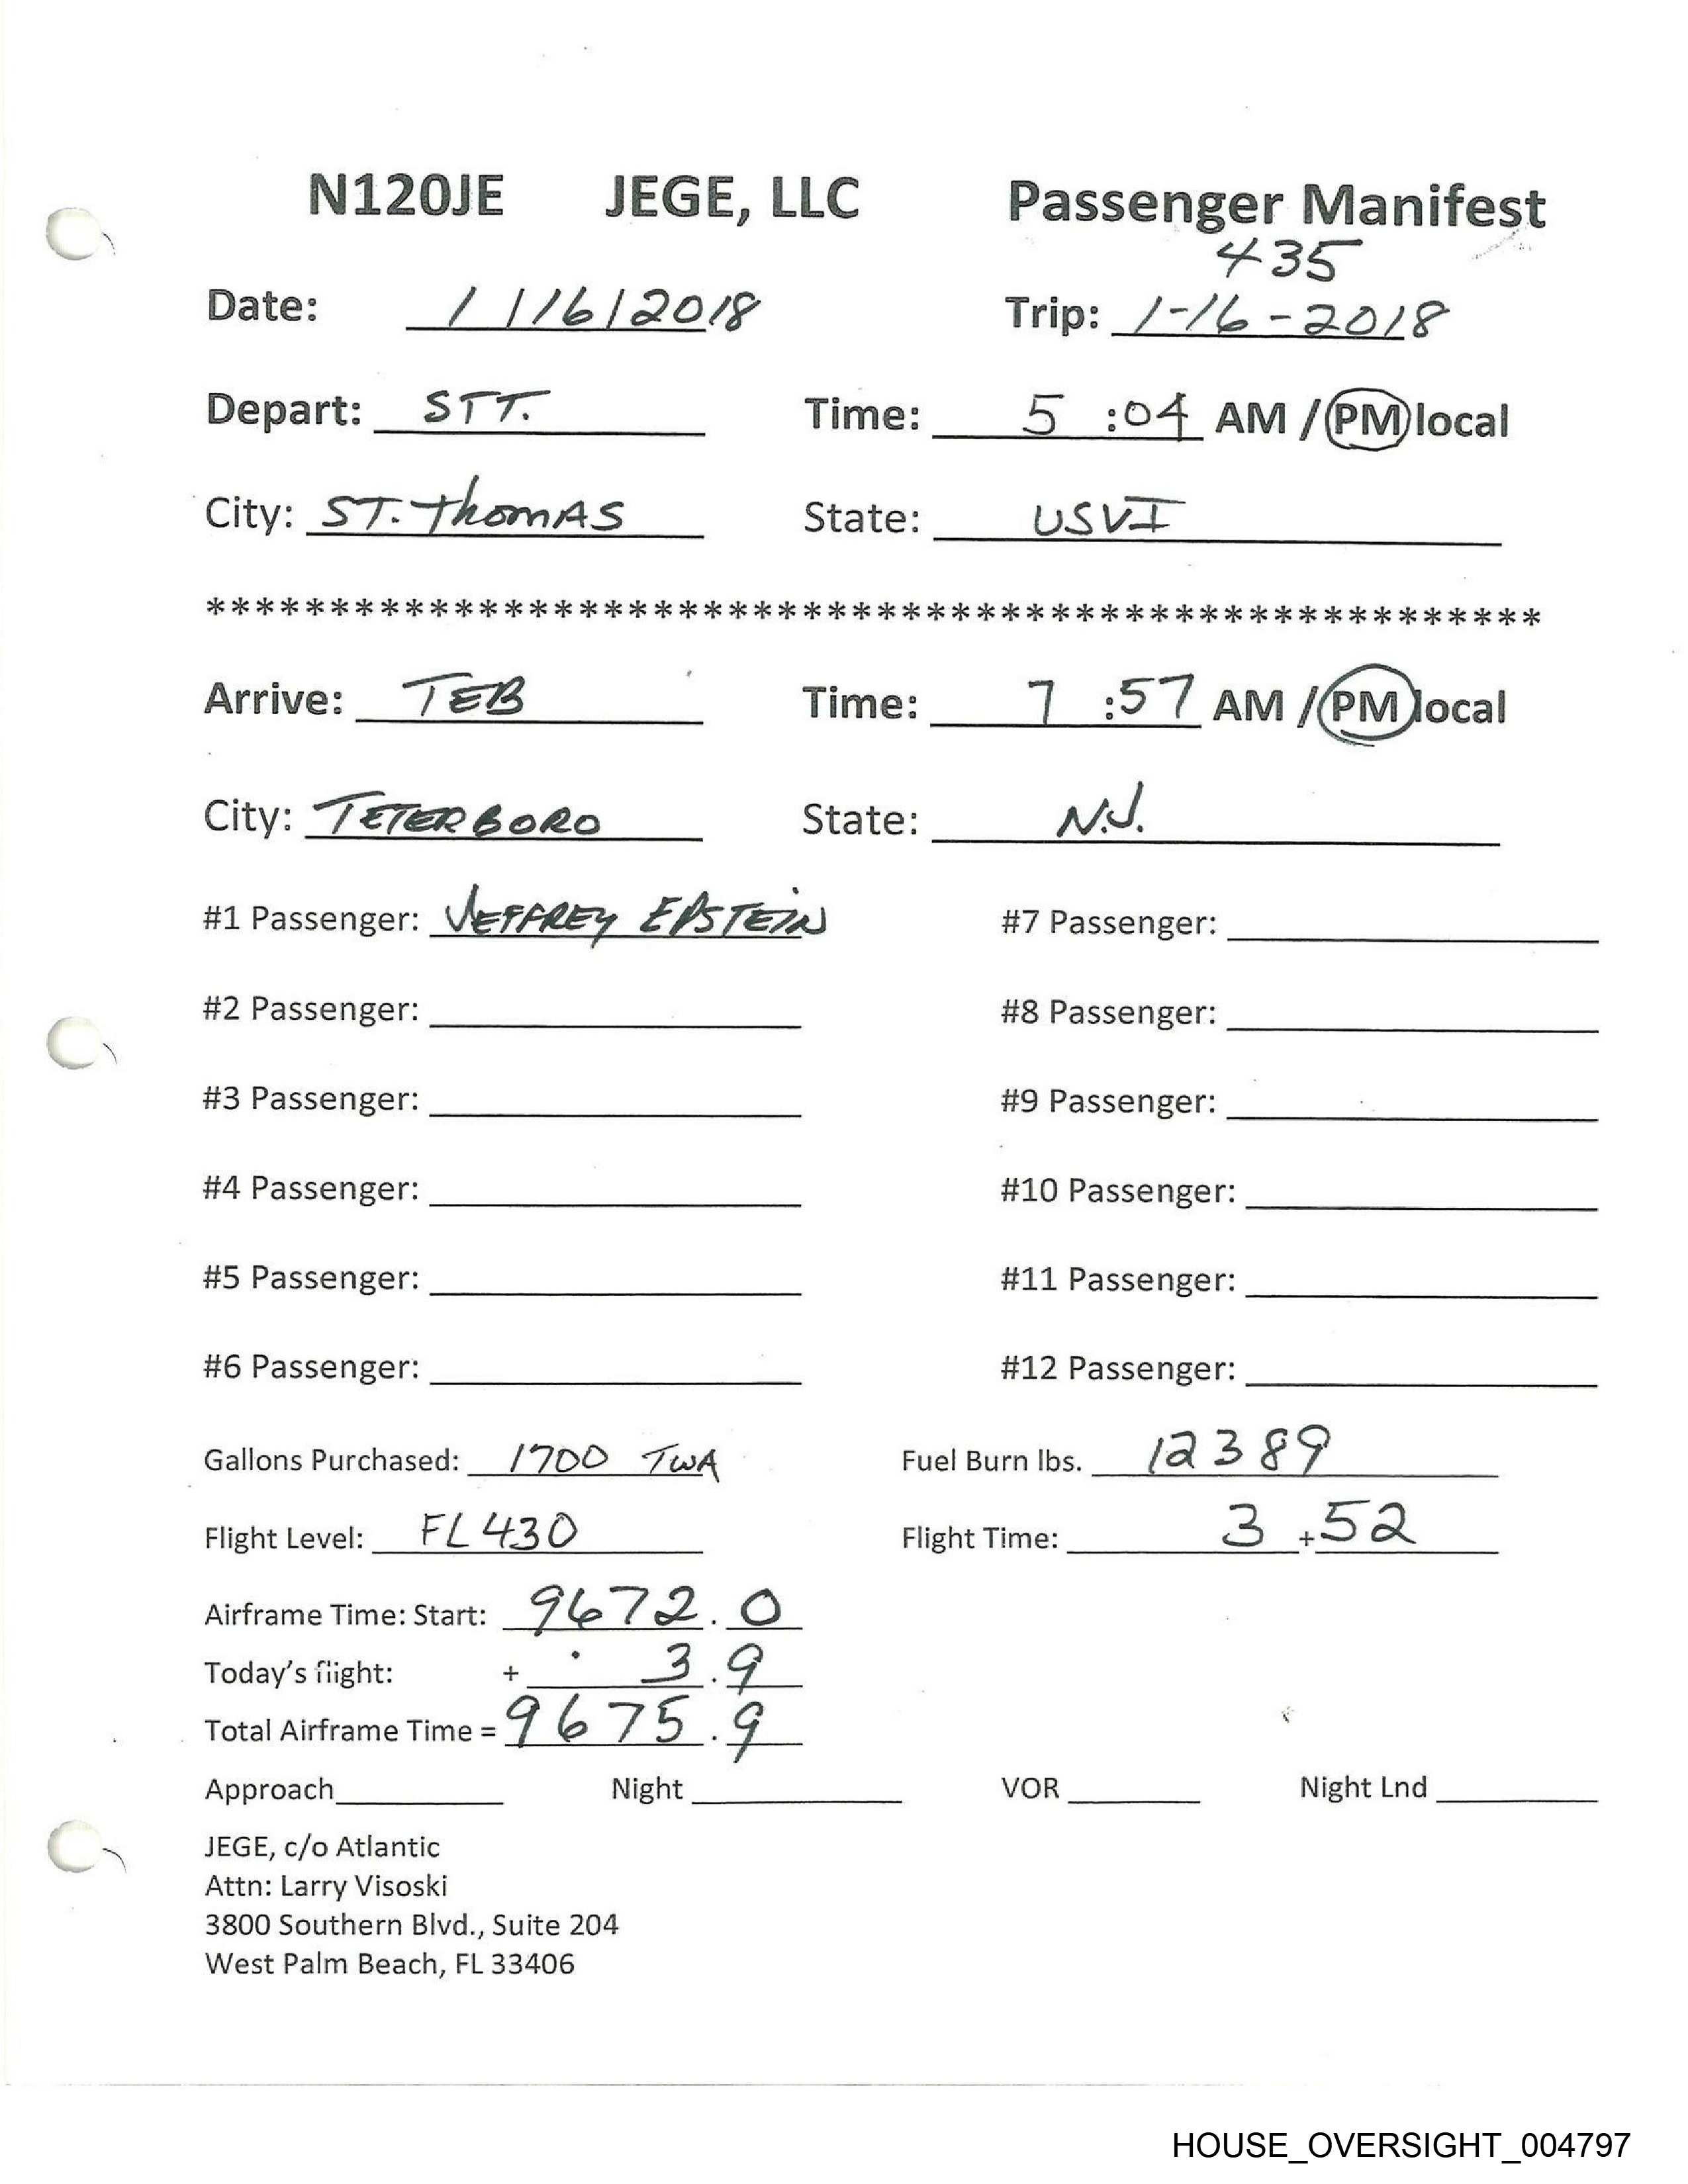 N120JE JEGE, LLC Passenger Manifest
435
Date: 1/16/2018 Trip: 1-16-2018
Depart: STT. Time: 5:04 AM / PM local
City: ST. Thomas State: USVI
******************************************************
Arrive: TEB Time: 7:57 AM / PM local
City: TETERBORO State: N.J.
#1 Passenger: JEFFREY EPSTEIN #7 Passenger:
#2 Passenger: #8 Passenger:
#3 Passenger: #9 Passenger:
#4 Passenger: #10 Passenger:
#5 Passenger: #11 Passenger:
#6 Passenger: #12 Passenger:
Gallons Purchased: 1700 TWA Fuel Burn lbs. 12389
Flight Level: FL430 Flight Time: 3 + 52
Airframe Time: Start: 9672.0
Today's flight: + 3.9
Total Airframe Time = 9675.9
Approach Night VOR Night Lnd
JEGE, c/o Atlantic
Attn: Larry Visoski
3800 Southern Blvd., Suite 204
West Palm Beach, FL 33406
HOUSE_OVERSIGHT_004797